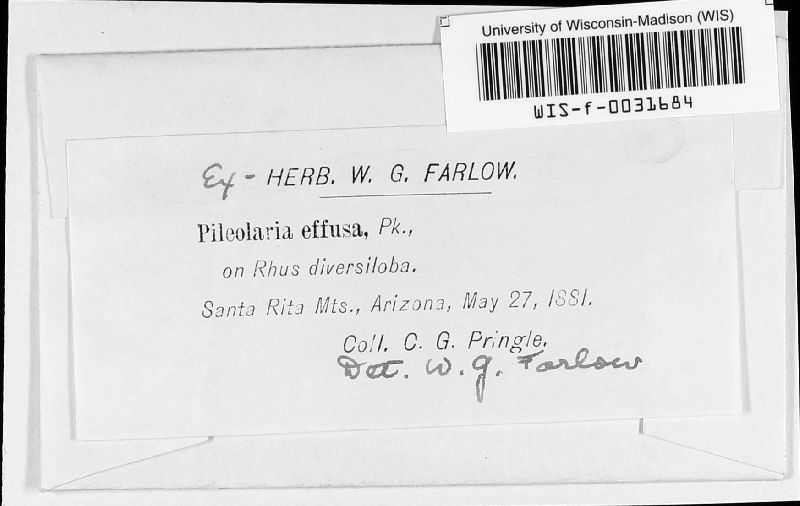 University of Wisconsin-Madison (WIS)
WIS-f-0031684
Ex - HERB. W. G. FARLOW.
Pileolaria effusa, Pk.,
on Rhus diversiloba.
Santa Rita Mts., Arizona, May 27, 1881.
Coll. C. G. Pringle.
Det. W. G. Farlow